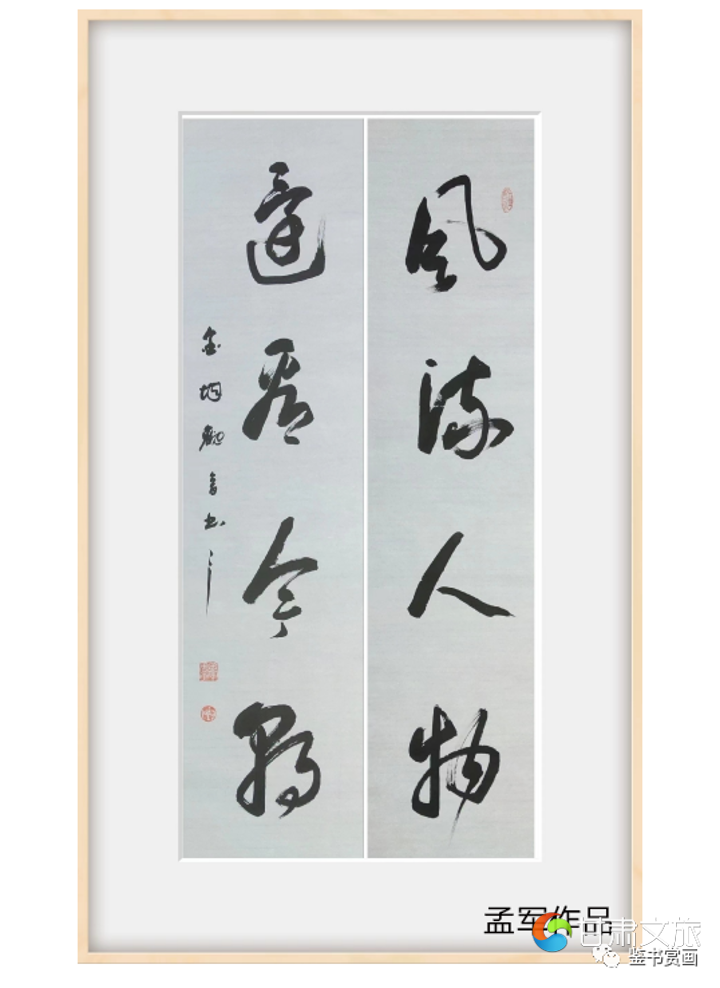 风流人物
還看今朝
孟军作品
甘肃文旅
鉴书赏画